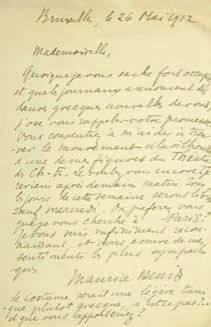 Bruxelles, le 26 Mai 1912
Mademoiselle,
Quoique je vous sache fort occupée
et que les journaux annoncent des
danses grecques nouvelles de vous,
j'ose vous rappeler votre promesse.
Vous consentîtes à m'aider à trou-
ver le mouvement et la silhouette
d'une de mes figures du Théâtre
des Ch-E. Le voulez-vous encore? Je
viens après demain matin. Tous
les jours de cette semaine seront libres
sauf mercredi. Ou préférez-vous
que je vous cherche à Paris?
Je vous suis infiniment recon-
naissant, et vous assure de mes
sentiments les plus sympathi-
ques
Maurice Denis
Le costume serait une légère tuni-
que plutôt grecque, n'est-ce pas?
et que vous apporteriez?